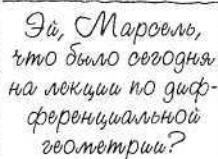 Эй, Марсель,
что было сегодня
на лекции по диф-
ференциальной
геометрии?